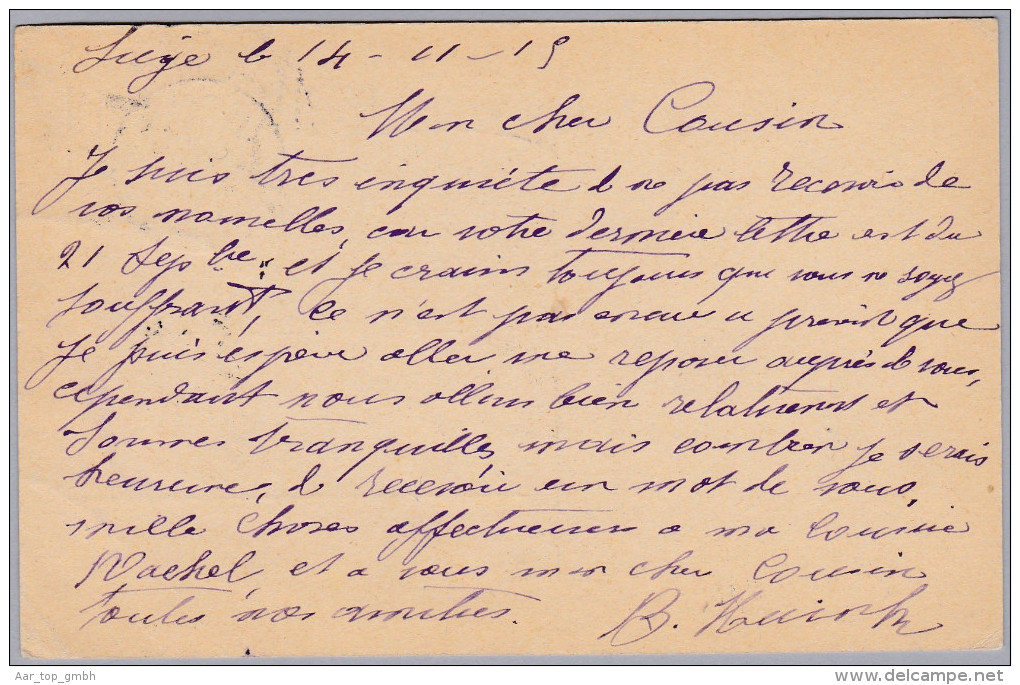 Liège le 14 - 11 - 15
Mon cher Cousin
Je suis très inquiète de ne pas recevoir de
vos nouvelles, car votre dernière lettre est du
21 Sepbre, et je crains toujours que vous ne soyez
souffrant, Ce n'est pas encore a présent que
je puis espérer aller me reposer auprès de vous,
cependant nous allons bien relativent et
sommes tranquilles, mais combien je serais
heureuse, de recevoir un mot de vous,
mille choses affectueuses a ma Cousine
Rachel, et a vous mon cher Cousin
toutes nos amitiés. B.
Aar_top_gmbh
delcampe.net